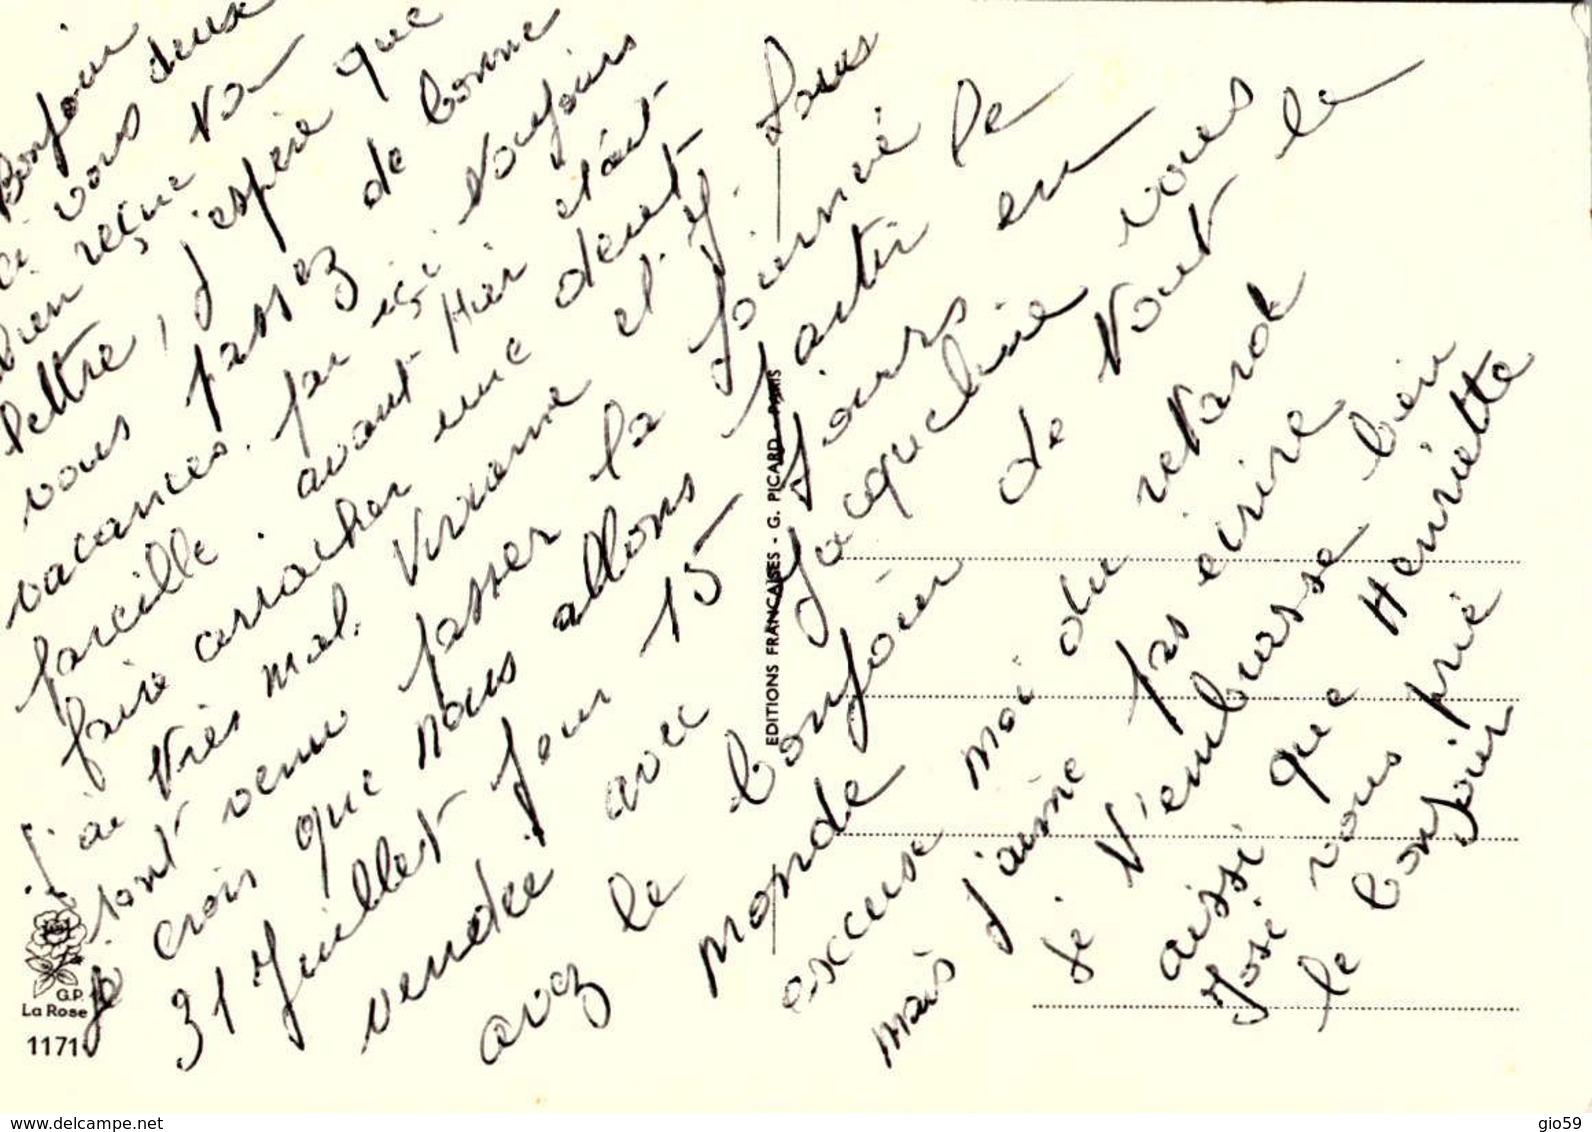 Bonjour
à vous deux
bien reçue ta
lettre, j'espère que
vous passez de bonne
vacances. par içi toujours
pareille. avant Hier etáit
faire arracher une deuet
j'ai très mal. Viviane et J. Lous
sont venu passer la Journeé
je crois que nous allons partir le
31 Juillet pour 15 Jours en
vendeé avec Jacqueline vous
avez le bonjour de tout le
monde
excuse moi du retard
mais j'aime pas ecrire
je t'embrasse bien
aissi que Henriette
José vous prié
le bonjour
EDITIONS FRANÇAISES - G. PICARD - PARIS
G.P.
La Rose
1171
www.delcampe.net
gio59